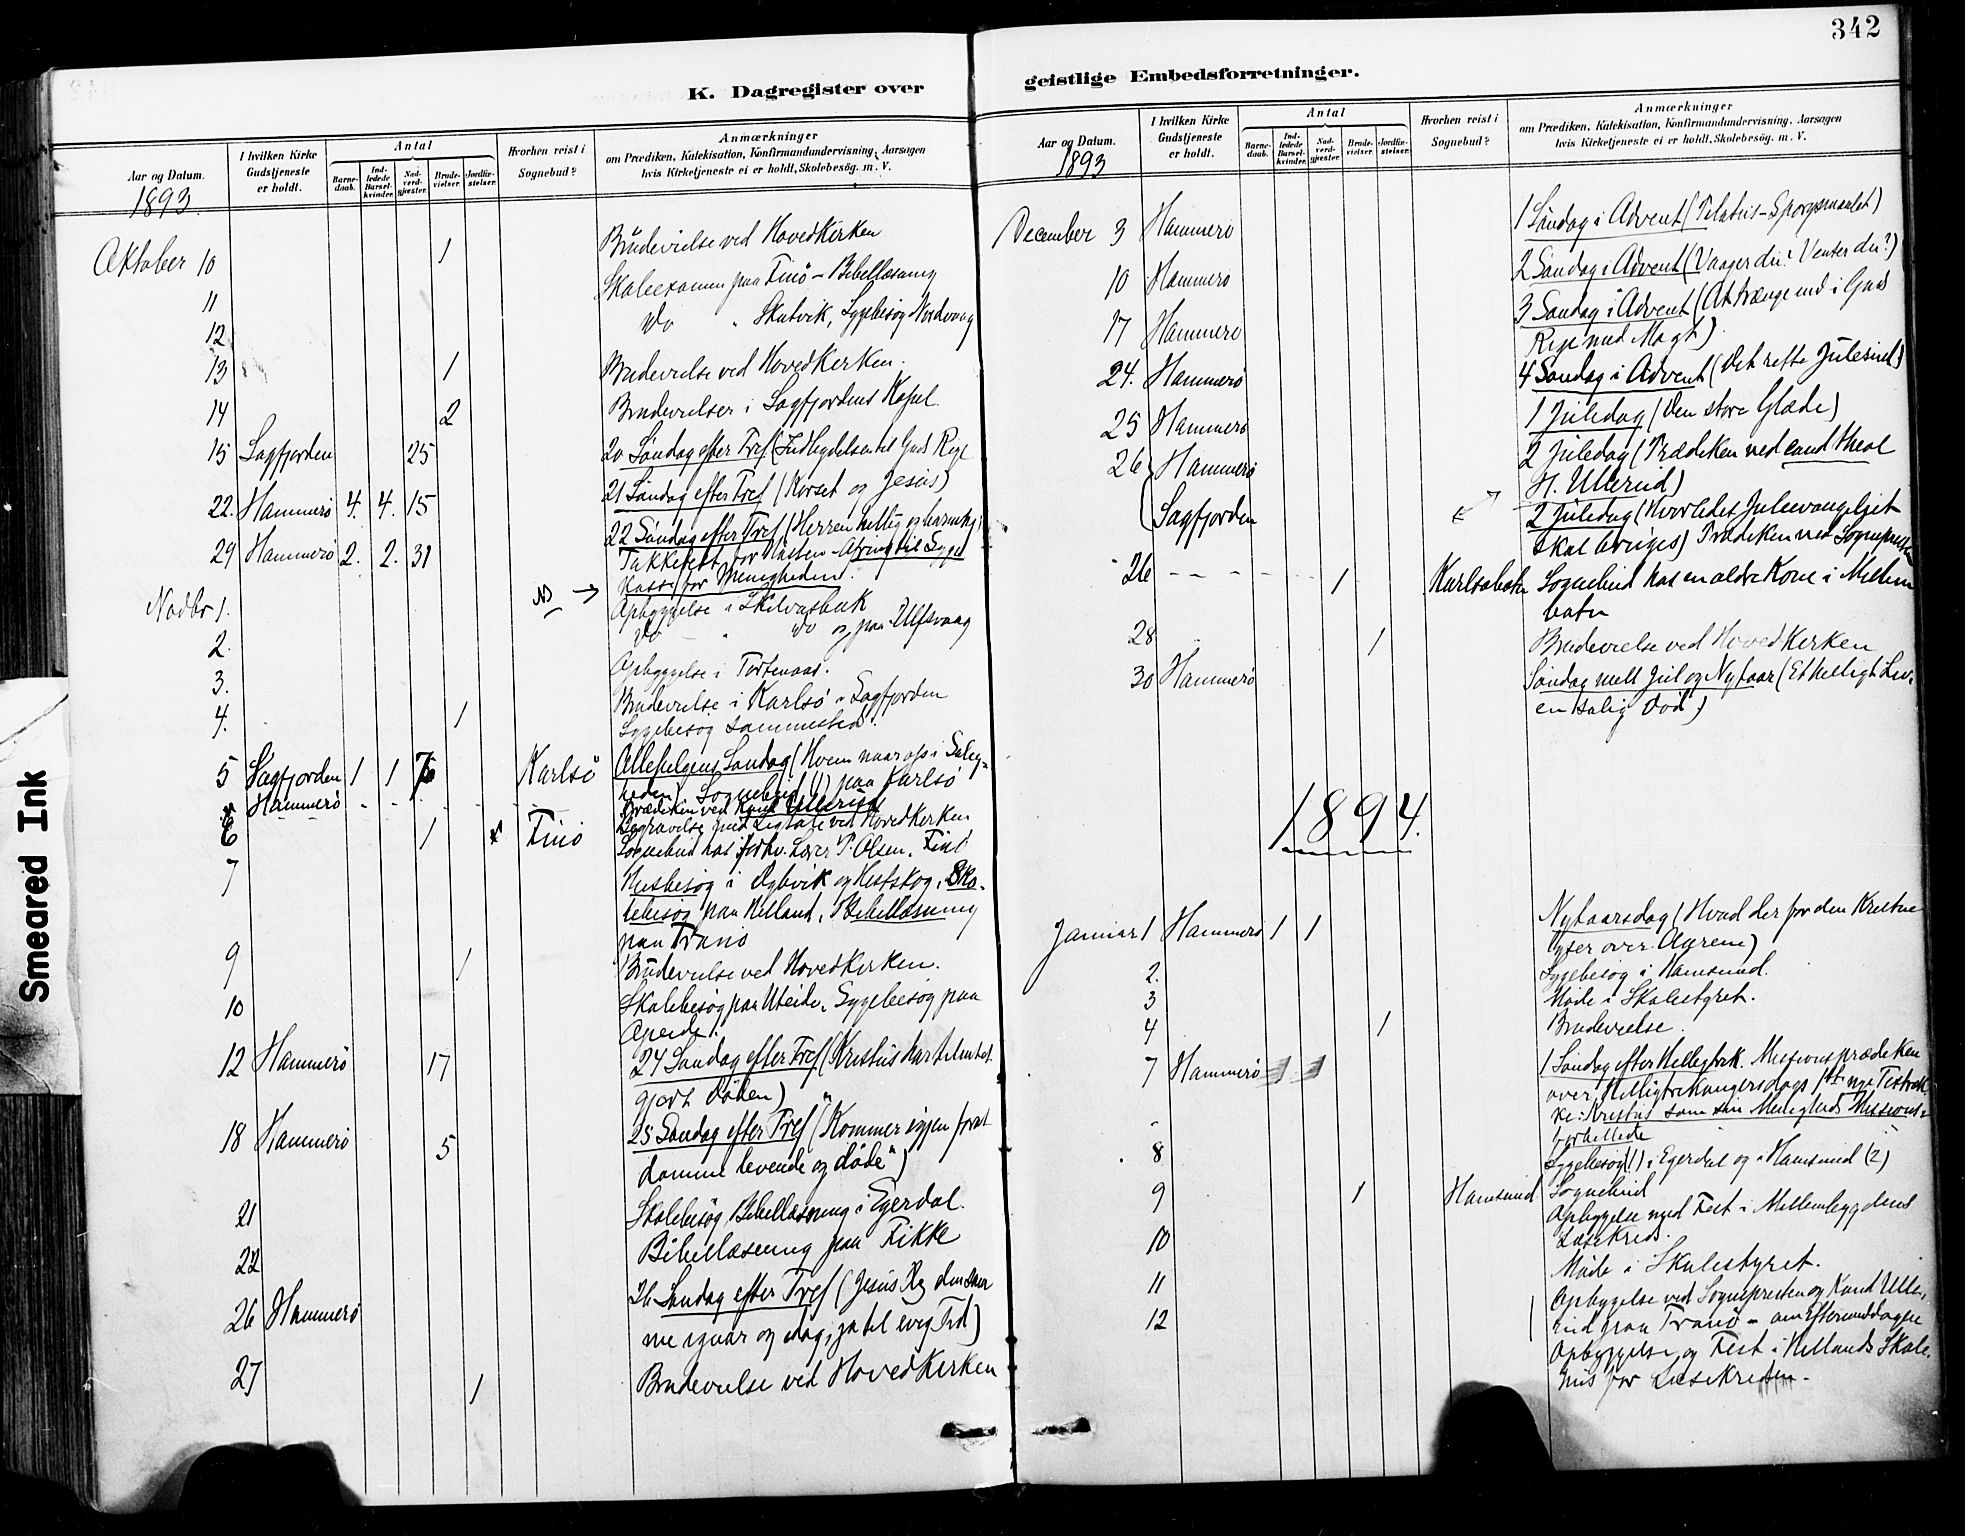 342
K. Dagregister over
Aar og Datum.
I hvilken Kirke Gudstjeneste er holdt.
Antal
Barne-daab.
Ind-ledede Barsel-kvinder.
Nad-verd-gjester.
Brude-vielser.
Jordfæ-stelser.
Hvorhen reist i Sognebud?
Anmærkninger
om Prædiken, Katekisation, Konfirmandundervisning, Aarsagen
hvis Kirketjeneste ei er holdt, Skolebesög. m. V.
1893.
Oktober 10 1 Brudevielse ved Hovedkerken
11 Skoleexamen paa Finö - Bibellæsning
12 Do " Skutvik, Sygebesög Nordvaag
13 1 Brudevielse ved Hovedkerken.
14 2 Brudevielser i Sagfjordens Kapel.
15 Sagfjorden 25 20 Söndag efter Tref (Indbydelsen til Guds Rige
22. Hammerö 4. 4. 15 21 Söndag efter Tref (Korset og Jesus)
29 Hammerö 2. 2. 31 22 Söndag efter Tref (Herren hellig og
Takkefest for Hösten - Ofring til Syge
Kasse for Menigheden.
Novbr 1. NB → Opbyggelse i Skilvasbuk
2. Do " Do og paa Ulfsvaag
3. Opbyggelse i Tortenaas.
4. 1 Brudevielse i Karlsö i Sagfjorden
Sygebesög sammested.
5 Sagfjorden 1 1 Karlsö Allehelgens Söndag (Hvem naar op i Salig-
heden) Sognebud (1) paa Karlsö
Hammerö Prædiken ved Kand Ullerud
6 1 Finö Begravelse med Ligtale ved Hovedkerken
Sognebud hos P. Olsen, Finö
7 Husbesög i Dybvik og Hestskog, Sko-
lebesög paa Helland, Bibellæsning
paa Tranö
9 1 Brudevielse ved Hovedkerken.
10 Skolebesög paa Uteide, Sygebesög paa
12 Hammerö 17 24 Söndag efter Tref (Kristus har tilintet
gjort Döden)
18 Hammerö 5 25 Söndag efter Tref ("Kommer igjen for at
dömme levende og döde")
21 Skolebesög, Bibellæsning i Egerdal.
22 Bibellæsning paa Fikke
26 Hammerö 26 Söndag efter Tref (Jesus Kr den sam
me igaar og idag, ja til evig Tid)
27 1 Brudevielse ved Hovedkerken
geistlige Embedsforretninger.
Aar og Datum.
I hvilken Kirke Gudstjeneste er holdt.
Antal
Barne-daab.
Ind-ledede Barsel-kvinder.
Nad-verd-gjester.
Brude-vielser.
Jordfæ-stelser.
Hvorhen reist i Sognebud?
Anmærkninger
om Prædiken, Katekisation, Konfirmandundervisning, Aarsagen
hvis Kirketjeneste ei er holdt. Skolebesög. m. V.
1893
December 3 Hammerö 1 Söndag i Advent (Pilatus-Spörgsmaalet)
10 Hammerö 2 Söndag i Advent (Vaager du? Venter du?)
17 Hammerö 3 Söndag i Advent (At trænge ind i Guds
Rige med Magt)
24. Hammerö 4 Söndag i Advent (det rette Julesind)
25 Hammerö 1 Juledag (Den store Glæde)
26 Hammerö 2 Juledag (Prædiken ved cand theol
H. Ullerud)
Sagfjorden 2 Juledag (Hvorledes Juleevangeliet
skal bruges) Prædiken ved Sognepresten
26 - - - - - 1 Karlsobotn Sognebud hos en ældre Kone i Mellem
botn
28 1 Brudevielse ved Hovedkerken
30 Hammerö Söndag mell Jul og Nytaar (Et helligt Liv,
en salig Död)
1894.
Januar 1 Hammerö 1 1 Nytaarsdag (Hvad der for den Kristne
lyser over Aarene)
2. Sygebesög i Hamsund.
3 Möde i Skolestyret.
4 1 Brudevielse.
7 Hammerö 1 1 1 Söndag efter Helligtrek. Missionsprædiken
over Helligtrekongersdags nye Textræk
ke: Kristus som sin Menigheds Missions-
forbillede
8 Sygebesög (1) i Egerdal og i Hamsund (2)
9 1 Hamsund Sognebud
Opbyggelse med Fest i Mellembygdens
Læsekreds.
10 Möde i Skolestyret.
11 Opbyggelse ved Sognepresten og Kand Ulle-
12 rud paa Tranö - om Eftermiddagen
Opbyggelse og Fest i Hellands Skole-
hus for Læsekredsen.
Smeared Ink